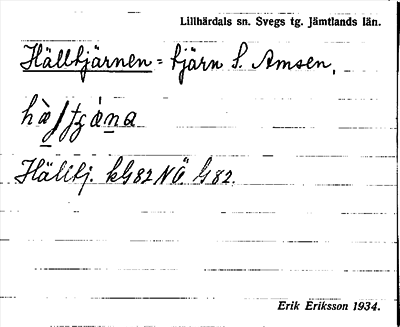 Lillhärdals sn. Svegs tg. Jämtlands län.
Hälltjärnen = tjärn S. Amsen,
Hälltj. kG82 NÖ G82.
Erik Eriksson 1934.